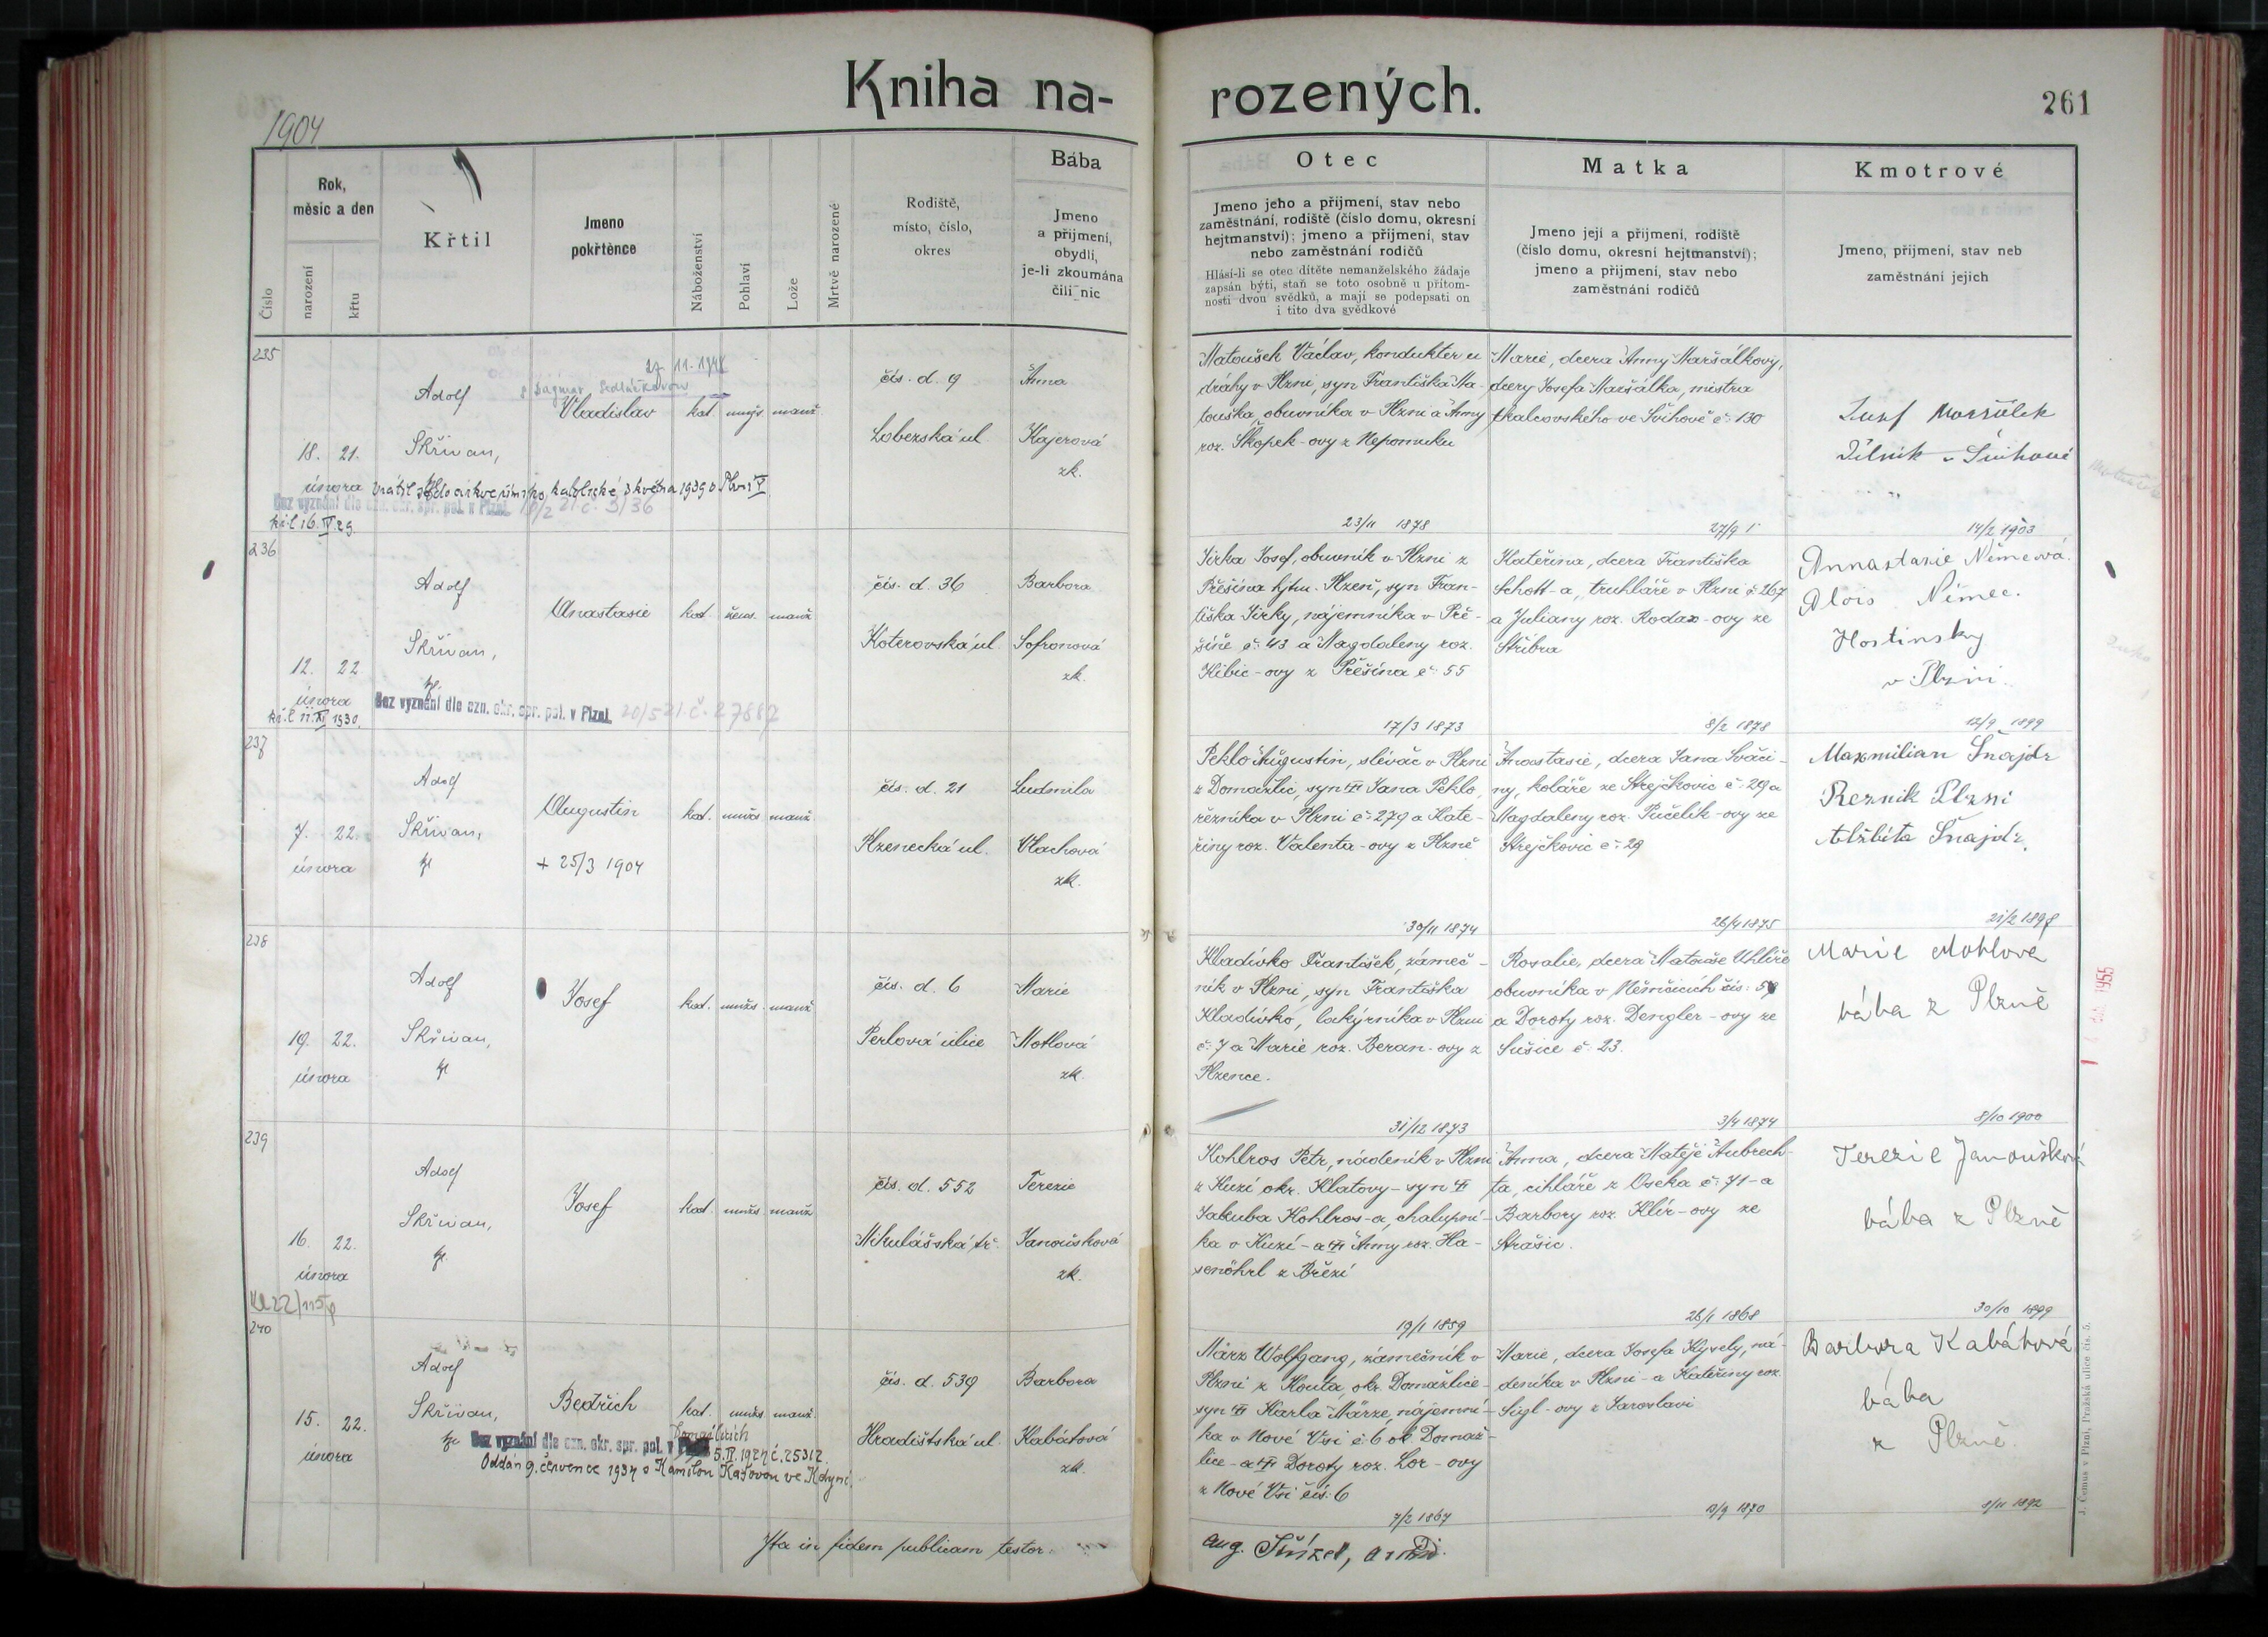 Kniha na-
rozených.
261
1904
Číslo
Rok,
měsíc a den
narození
křtu
Křtil
Jmeno
pokřtěnce
Náboženství
Pohlaví
Lože
Mrtvě narozené
Rodiště,
místo, číslo,
okres
Bába
Jmeno
a přijmení,
obydlí,
je-li zkoumána
čili nic
Otec
Jmeno jeho a přijmení, stav nebo
zaměstnání, rodiště (číslo domu, okresní
hejtmanství); jmeno a přijmení, stav
nebo zaměstnání rodičů
Hlásí-li se otec dítěte nemanželského žádaje
zapsán býti, staň se toto osobně u přítom-
nosti dvou svědků, a mají se podepsati on
i tito dva svědkové
Matka
Jmeno její a přijmení, rodiště
(číslo domu, okresní hejtmanství);
jmeno a přijmení, stav nebo
zaměstnání rodičů
Kmotrové
Jmeno, přijmení, stav neb
zaměstnání jejich
235
18. 21.
února
Adolf
Skřivan,
11. 1948
s Dagmar Sedláčkovou
Vladislav
kat. mužs. manž.
čís. d. 9
Lobezská ul.
Anna
Kajerová
zk.
vrátil se do církve římsko katolické 3 května 1939 v Plzni V
Bez vyznání dle ozn. okr. spr. pol. v Plzni
kř. l. 16. IV. 29.
Matoušek Václav, kondukter u
dráhy v Plzni, syn Františka Ma-
touška obuvníka v Plzni a Anny
roz. Škopek-ovy z Nepomuku
23/11 1878
Marie, dcera Anny Maršálkovy,
dcery Josefa Maršálka, mistra
tkalcovského ve Švihově č. 130
27/9
Josef Maršálek
v Švihově
14/2 1903
236
12. 22.
února
Adolf
Skřivan,
kp.
Anastasie
kat. žens. manž.
čís. d. 36
Koterovská ul.
Barbora
Sofronová
zk.
kř. l. 11. XI 1930.
Bez vyznání dle ozn. okr. spr. pol. v Plzni
Jirka Josef, obuvník v Plzni z
Přešína hjtm. Plzeň, syn Fran-
tiška Jirky, nájemníka v Pře-
šíně č. 43 a Magdaleny roz.
Kibic-ovy z Přešína č. 55
17/3 1873
Kateřina, dcera Františka
Schott-a, truhláře v Plzni č. 267
a Juliany roz. Rodax-ovy ze
Stříbra
8/2 1878
Annastasie Němcová.
Alois Němec.
Hostinsky
v Plzni.
12/9 1899
237
7. 22.
února
Adolf
Skřivan,
kp
Augustin
+ 25/3 1904
kat. mužs. manž.
čís. d. 21
Plzenecká ul.
Ludmila
Vlachová
zk.
Peklo Augustin, slévač v Plzni
z Domažlic, syn Jana Peklo,
řezníka v Plzni č. 279 a Kate-
řiny roz. Valenta-ovy z Plzně
30/11 1874
Anastasie, dcera Jana Sváči-
ny, koláře ze Strejčkovic č. 29 a
Magdaleny roz. Pučelík-ovy ze
Strejčkovic č. 29
26/4 1875
Maxmilian Šnajdr
Řezník Plzni
Alžbita Šnajdr.
21/2 1898
238
19. 22.
února
Adolf
Skřivan,
kp
Josef
kat. mužs. manž.
čís. d. 6
Perlová ulice
Marie
Motlová
zk.
Kladivko František, zámeč-
ník v Plzni, syn Františka
Kladivko, lakýrníka v Plzni
č. 7 a Marie roz. Beran-ovy z
Plzence.
31/12 1873
Rosalie, dcera Matouše Uhlíře
obuvníka v Němčicích čís. 59
a Doroty roz. Dengler-ovy ze
Sušice č. 23.
3/4 1874
Marie Mohlová
bába z Plzně
8/10 1900
239
16. 22.
února
Adolf
Skřivan,
kp
Josef
kat. mužs. manž.
čís. d. 552
Mikulášská tř.
Terezie
Janoušková
zk.
Kohlros Petr, nádeník v Plzni
z Kuzí okr. Klatovy - syn
Jakuba Kohlros-a, chalupní-
ka v Kuzí - a Anny roz. Ha-
senöhrl z Březí
19/1 1859
Anna, dcera Matěje Aubrech-
ta, cihláře z Oseka č. 71 - a
Barbory roz. Klír-ovy ze
Strašic.
28/1 1868
Terezie Janoušková
bába z Plzně
30/10 1899
240
15. 22.
února
Adolf
Skřivan,
kp.
Bedřich
kat. mužs. manž.
čís. d. 539
Hradištská ul.
Barbora
Kabátová
zk.
Bez vyznání dle ozn. okr. spr. pol. v
5. II. 1927 č. 25312.
Oddán 9. července 1934 s Kamilou Kaťovou ve Kdyni.
März Wolfgang, zámečník v
Plzni z Kouta, okr. Domažlice-
syn Karla Märze, nájemní-
ka v Nové Vsi č. 6 ok. Domaž-
lice - a Doroty roz. Lor-ovy
z Nové Vsi čís. 6
7/2 1867
Marie, dcera Josefa Kysely, ná-
deníka v Plzni - a Kateřiny roz.
Sigl-ovy z Jaroslavi
13/9 1870
Barbora Kabátová
bába
z Plzně.
8/11 1892
Ita in fidem publicam testor.
J. Čemus v Plzni, Pražská ulice čís. 5.